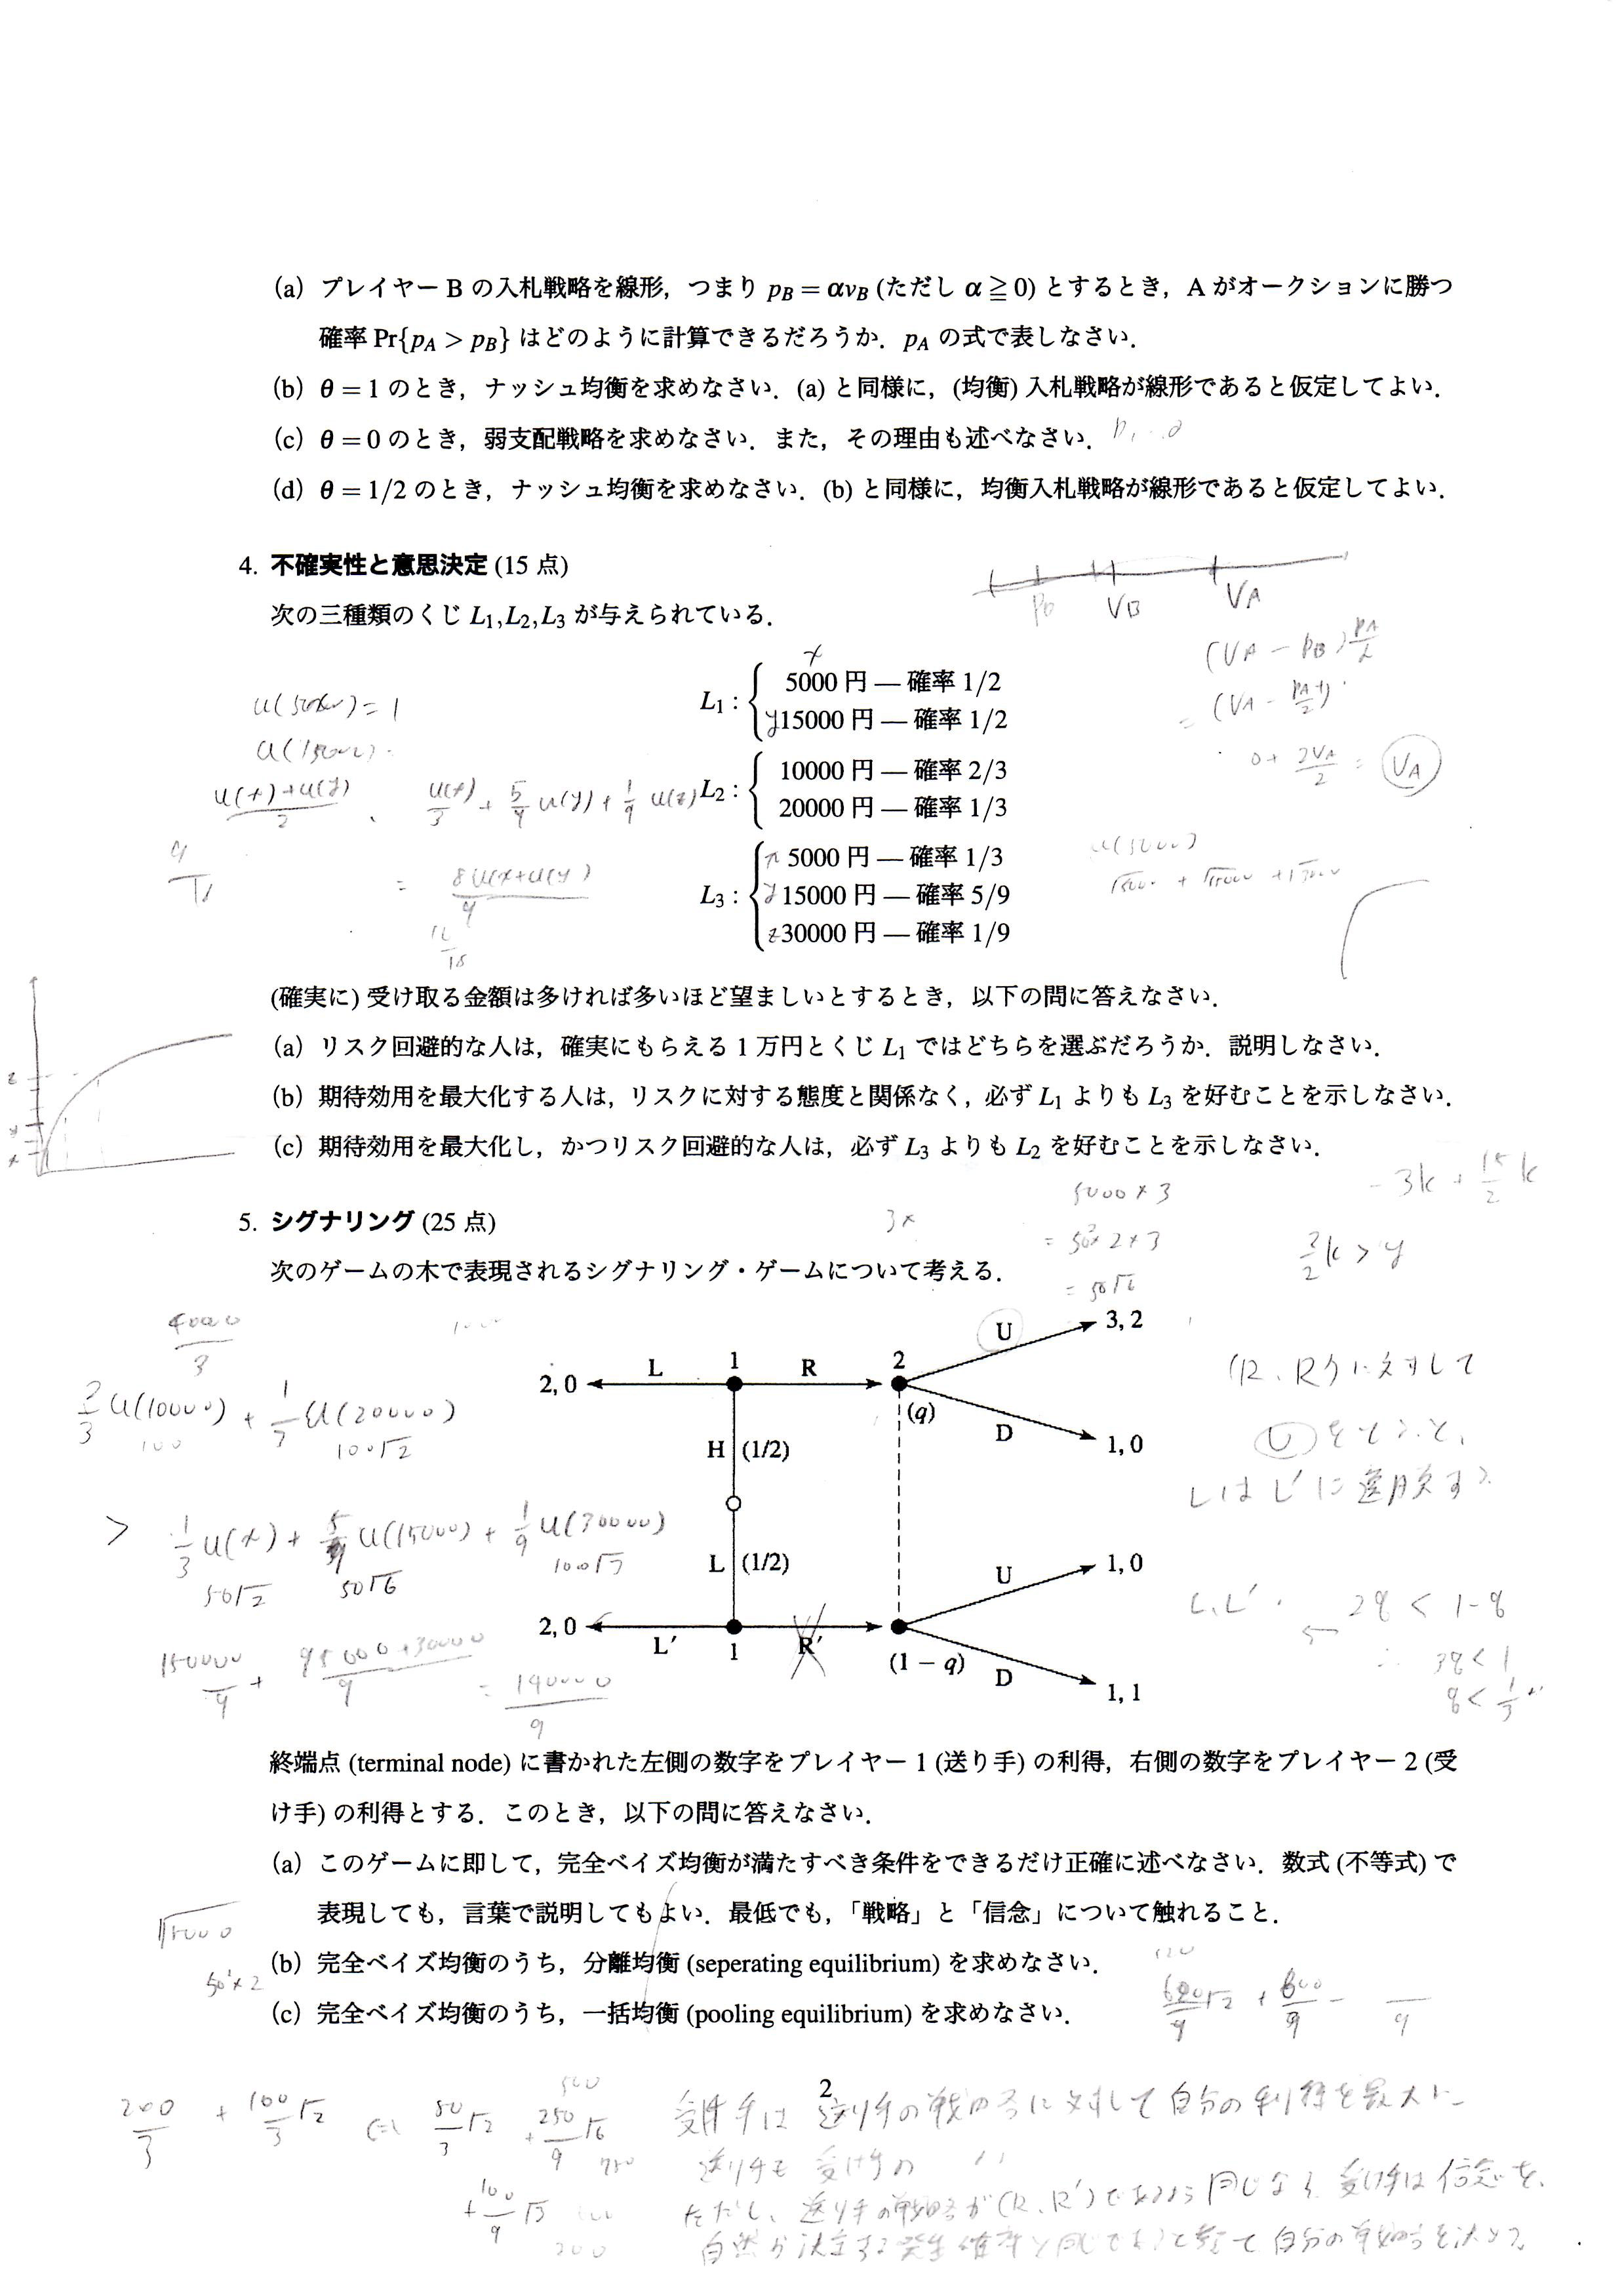 (a) プレイヤー B の入札戦略を線形，つまり pB = αvB (ただし α ≧ 0) とするとき，A がオークションに勝つ
確率 Pr{pA > pB} はどのように計算できるだろうか．pA の式で表しなさい．
(b) θ = 1 のとき，ナッシュ均衡を求めなさい．(a) と同様に，(均衡) 入札戦略が線形であると仮定してよい．
(c) θ = 0 のとき，弱支配戦略を求めなさい．また，その理由も述べなさい．
(d) θ = 1/2 のとき，ナッシュ均衡を求めなさい．(b) と同様に，均衡入札戦略が線形であると仮定してよい．
4. 不確実性と意思決定 (15 点)
次の三種類のくじ L1,L2,L3 が与えられている．
PB VB VA
x
L1 : 5000 円 — 確率 1/2
y 15000 円 — 確率 1/2
L2 : 10000 円 — 確率 2/3
20000 円 — 確率 1/3
L3 : x 5000 円 — 確率 1/3
y 15000 円 — 確率 5/9
z 30000 円 — 確率 1/9
u(5000) = 1
u(x)+u(y) / 2
u(x)/3 + 5/9 u(y) + 1/9 u(z)
(VA − PB) PA/2
VA
(確実に) 受け取る金額は多ければ多いほど望ましいとするとき，以下の問に答えなさい．
(a) リスク回避的な人は，確実にもらえる 1 万円とくじ L1 ではどちらを選ぶだろうか．説明しなさい．
(b) 期待効用を最大化する人は，リスクに対する態度と関係なく，必ず L1 よりも L3 を好むことを示しなさい．
(c) 期待効用を最大化し，かつリスク回避的な人は，必ず L3 よりも L2 を好むことを示しなさい．
5000 × 3
= 50² 2 × 3
= 50√6
− 3k + 15/2 k
5. シグナリング (25 点)
次のゲームの木で表現されるシグナリング・ゲームについて考える．
U 3, 2
2, 0 L 1 R 2
(q)
D 1, 0
H (1/2)
L (1/2)
U 1, 0
2, 0 L′ 1 R′ (1 − q)
D 1, 1
40000/3
2/3 u(10000) + 1/3 u(20000)
100 100√2
> 1/3 u(x) + 5/9 u(15000) + 1/9 u(30000)
50√2 50√6 100√3
150000/9 + 95000+30000/9 = 190000/9
(R、R′)に対して
LはL′に逸脱する
L、L′
2q < 1−q
3q < 1
q < 1/3
終端点 (terminal node) に書かれた左側の数字をプレイヤー 1 (送り手) の利得，右側の数字をプレイヤー 2 (受
け手) の利得とする．このとき，以下の問に答えなさい．
(a) このゲームに即して，完全ベイズ均衡が満たすべき条件をできるだけ正確に述べなさい．数式 (不等式) で
表現しても，言葉で説明してもよい．最低でも，「戦略」と「信念」について触れること．
(b) 完全ベイズ均衡のうち，分離均衡 (seperating equilibrium) を求めなさい．
(c) 完全ベイズ均衡のうち，一括均衡 (pooling equilibrium) を求めなさい．
50² × 2
2
200/3 + 100/3 √2
50/3 √2 + 250/9 √6
+ 100/9 √3
受け手は 送り手の戦略に対して自分の利得を最大に
送り手も 受け手の 〃
ただし、送り手の戦略が(R、R′)であるなら同じなら 受け手は信念を、
自然が決定する発生確率と同じであると考えて自分の戦略を決める